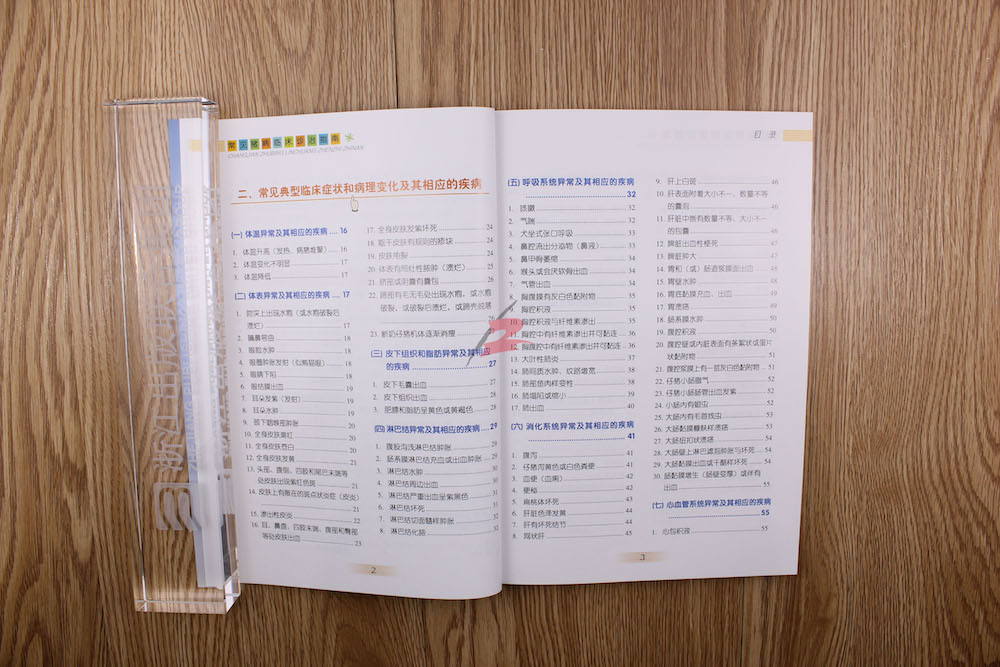 常见猪病临床诊治指南
CHANGJIAN ZHUBING LINCHUANG ZHENZHI ZHINAN
二、常见典型临床症状和病理变化及其相应的疾病
(一) 体温异常及其相应的疾病 .... 16
1. 体温升高（发热、病猪堆聚） ... 16
2. 体温变化不明显 ... 17
3. 体温降低 ... 17
(二) 体表异常及其相应的疾病 ... 17
1. 吻突上出现水疱（或水疱破裂后
溃疡） ... 17
2. 端鼻弯曲 ... 18
3. 眼睑水肿 ... 18
4. 眼圈肿胀发绀（似熊猫眼） ... 18
5. 眼睛下陷 ... 18
6. 眼结膜出血 ... 19
7. 耳朵发紫（发绀） ... 19
8. 耳朵水肿 ... 19
9. 颌下咽喉部肿胀 ... 20
10. 全身皮肤潮红 ... 20
11. 全身皮肤苍白 ... 20
12. 全身皮肤发黄 ... 21
13. 头部、腹侧、四肢和尾巴末端等
处皮肤出现紫红色斑 ... 21
14. 皮肤上有散在的斑点状炎症（皮炎）
... 21
15. 渗出性皮炎 ... 22
16. 耳、鼻盘、四肢末端、腹部和臀部
等处皮肤出血 ... 23
17. 全身皮肤发紫坏死 ... 24
18. 躯干皮肤有规则的疹块 ... 24
19. 皮肤皲裂 ... 24
20. 体表有局灶性脓肿（溃烂） ... 25
21. 脐部或阴囊有囊包 ... 26
22. 蹄部有毛无毛处出现水疱，或水疱
破裂、或破裂后溃烂、或蹄壳脱落
... 26
23. 新奶仔猪机体逐渐消瘦 ... 27
(三) 皮下组织和脂肪异常及其相应
的疾病 ... 27
1. 皮下毛囊出血 ... 27
2. 皮下组织出血 ... 28
3. 肥膘和脂肪呈黄色或黄褐色 ... 28
(四) 淋巴结异常及其相应的疾病 ... 29
1. 腹股沟浅淋巴结肿胀 ... 29
2. 肠系膜淋巴结充血或出血肿胀 ... 29
3. 淋巴结水肿 ... 30
4. 淋巴结周边出血 ... 30
5. 淋巴结严重出血呈紫黑色 ... 31
6. 淋巴结坏死 ... 31
7. 淋巴结切面髓样肿胀 ... 32
8. 淋巴结化脓 ... 32
2
目 录
(五) 呼吸系统异常及其相应的疾病
... 32
1. 咳嗽 ... 32
2. 气喘 ... 32
3. 犬坐式张口呼吸 ... 33
4. 鼻腔流出分泌物（鼻液） ... 33
5. 鼻甲骨萎缩 ... 34
6. 喉头或会厌软骨出血 ... 34
7. 气管出血 ... 34
8. 胸腹膜有灰白色黏附物 ... 35
9. 胸腔积液 ... 35
10. 胸腔积液与纤维素渗出 ... 35
11. 胸腔中有纤维素渗出并可黏连 ... 36
12. 胸腹腔中有纤维素渗出并可黏连 ... 36
13. 大叶性肺炎 ... 37
14. 肺间质水肿、纹路增宽 ... 38
15. 肺部鱼肉样变性 ... 38
16. 肺塌陷或缩小 ... 39
17. 肺出血 ... 40
(六) 消化系统异常及其相应的疾病
... 41
1. 腹泻 ... 41
2. 仔猪泻黄色或白色粪便 ... 41
3. 血便（血痢） ... 42
4. 便秘 ... 42
5. 扁桃体坏死 ... 43
6. 肝脏色泽发黄 ... 44
7. 肝有坏死结节 ... 44
8. 网状肝 ... 45
9. 肝上白斑 ... 46
10. 肝表面附着大小不一、数量不等
的囊泡 ... 46
11. 肝脏中散有数量不等、大小不一
的包囊 ... 46
12. 脾脏出血性梗死 ... 47
13. 脾脏肿大 ... 47
14. 胃和（或）肠道浆膜面出血 ... 48
15. 胃壁水肿 ... 48
16. 胃底黏膜充血、出血 ... 49
17. 胃溃疡 ... 49
18. 肠系膜水肿 ... 50
19. 腹腔积液 ... 50
20. 腹腔壁或内脏表面有条絮状或蛋片
状黏附物 ... 51
21. 腹腔浆膜上有一层灰白色黏附物 ... 51
22. 仔猪小肠胀气 ... 52
23. 仔猪小肠肠管出血发紫 ... 52
24. 小肠内有蛔虫 ... 52
25. 大肠内有毛首线虫 ... 53
26. 大肠黏膜糠麸样溃疡 ... 53
27. 大肠纽扣状溃疡 ... 54
28. 大肠壁上淋巴滤泡肿胀与坏死 ... 54
29. 大肠黏膜出血或干酪样坏死 ... 54
30. 肠黏膜增生（肠壁变厚）或伴有
出血 ... 55
(七) 心血管系统异常及其相应的疾病
... 55
1. 心包积液 ... 55
3